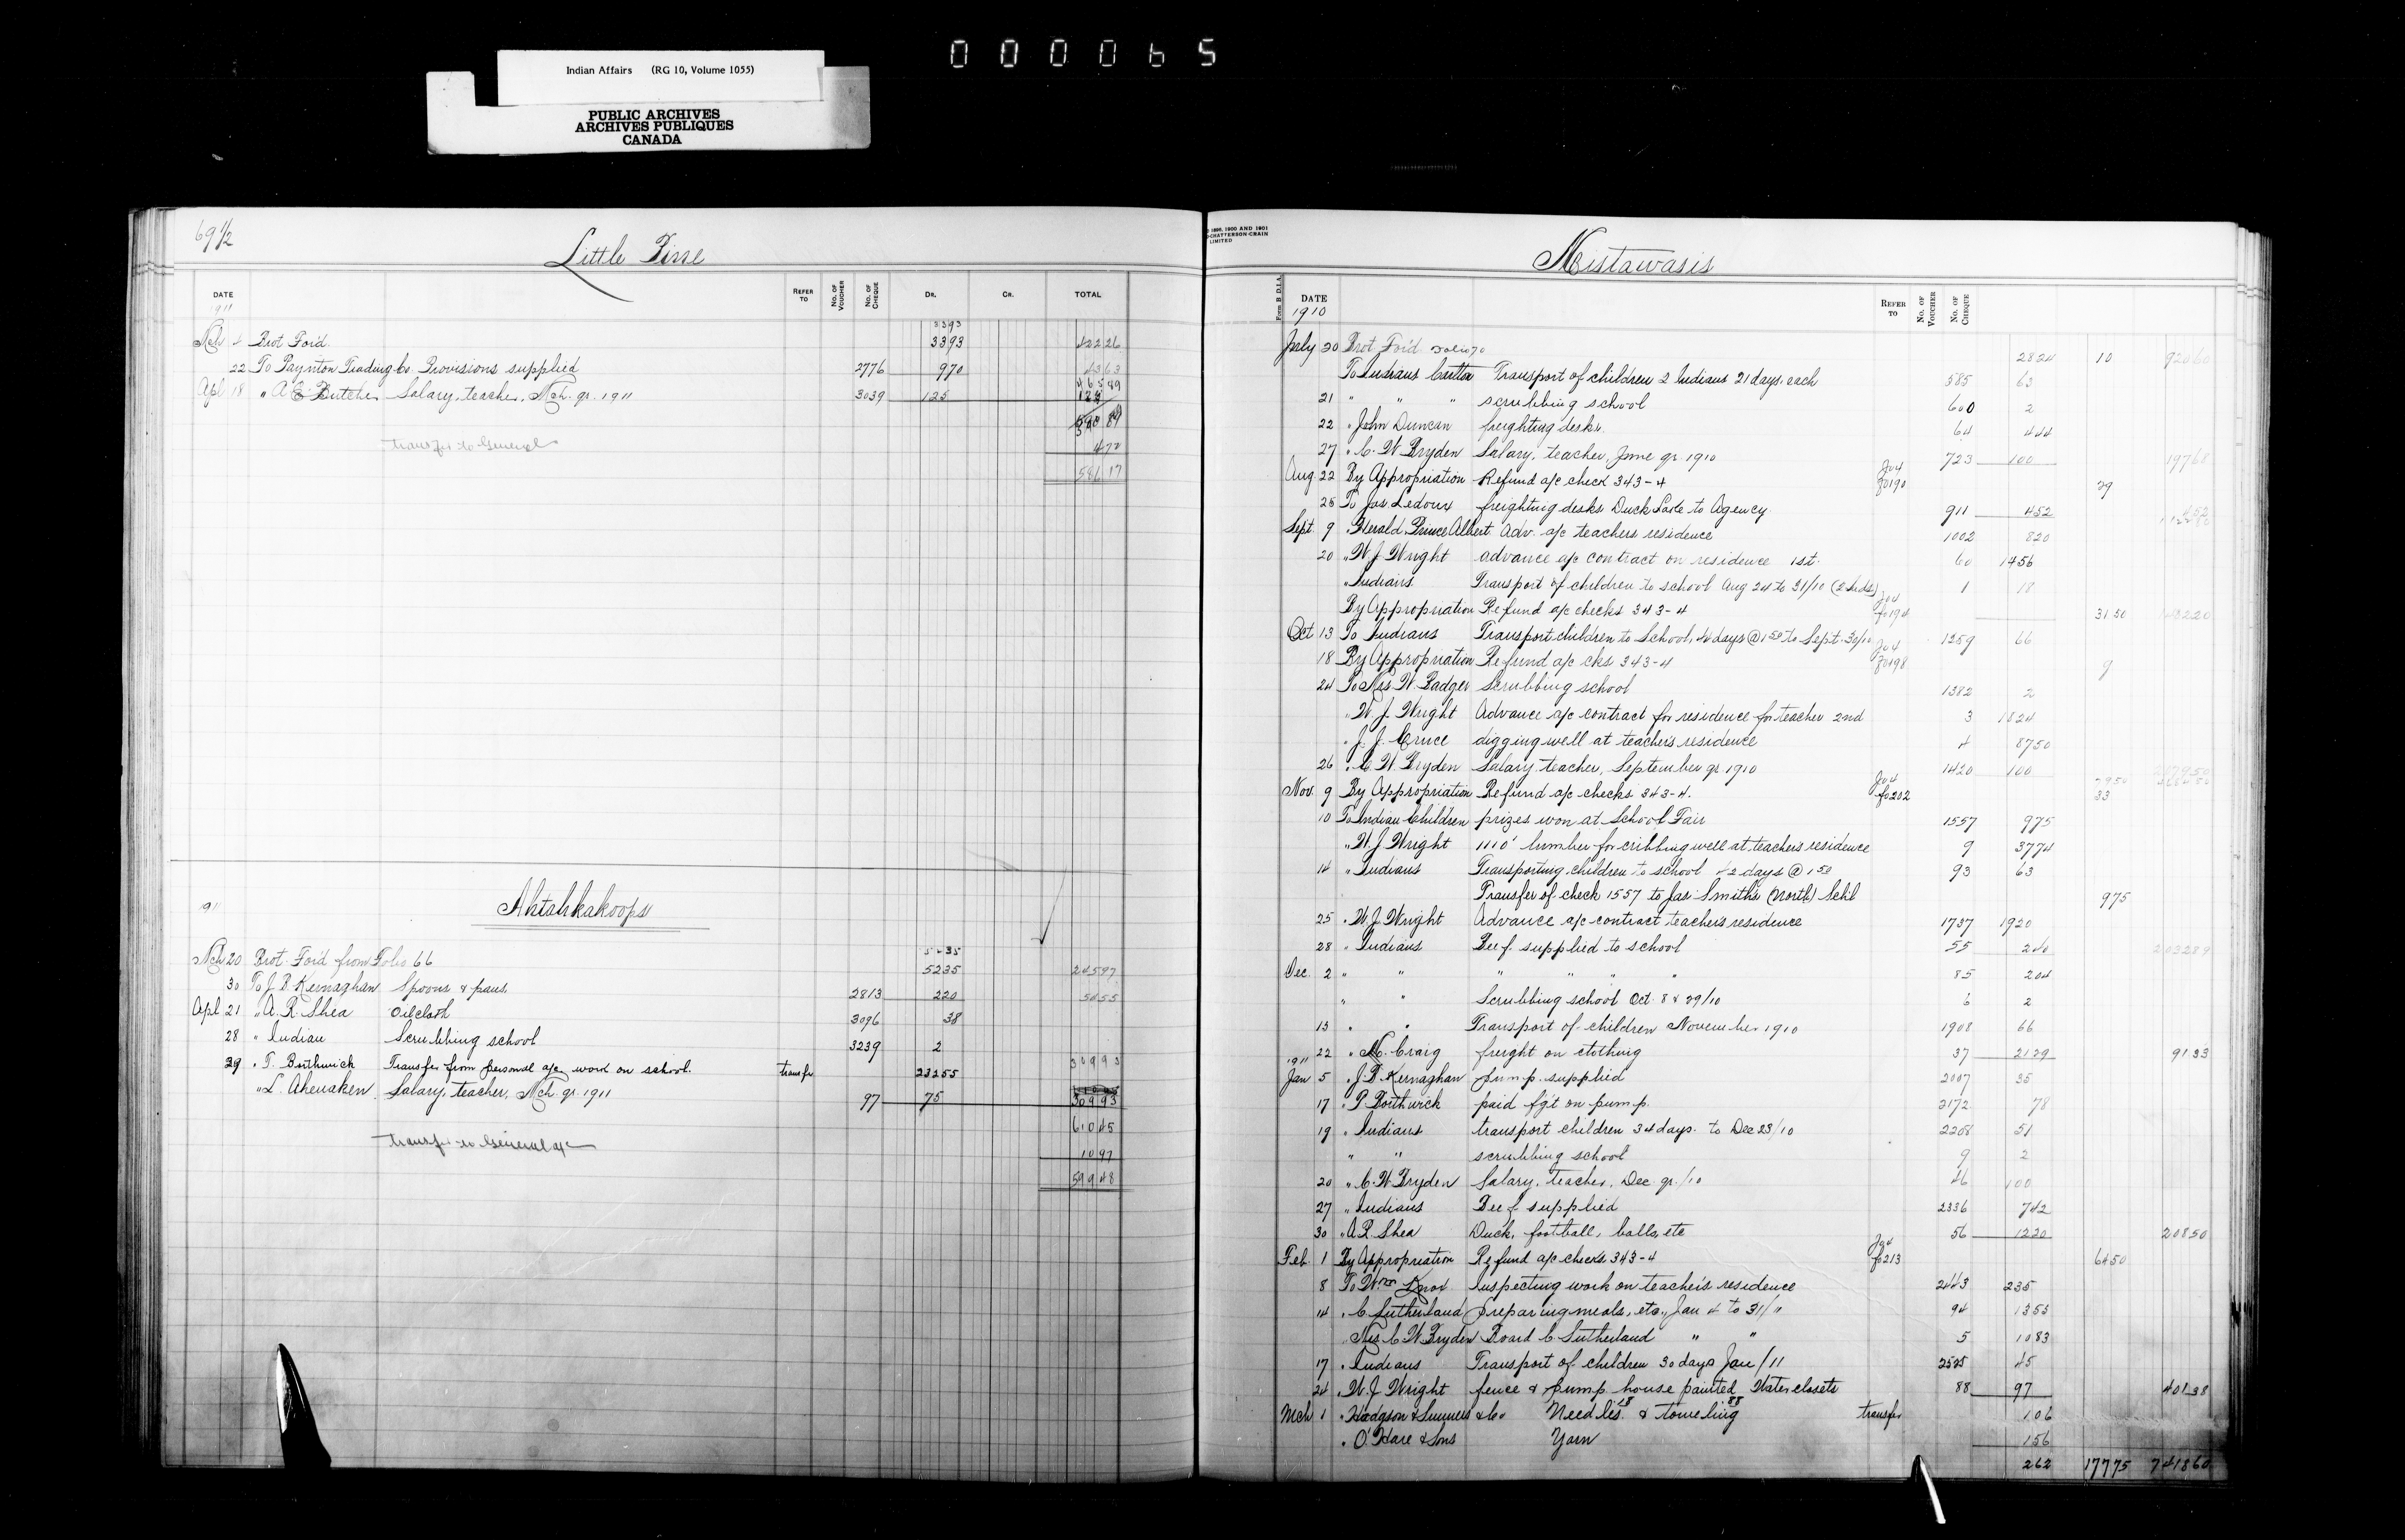 000065
Indian Affairs (RG 10, Volume 1055)
PUBLIC ARCHIVES
ARCHIVES PUBLIQUES
CANADA
69 1/2
Little Pine
DATE REFER TO No. OF VOUCHER No. OF CHEQUE DR. CR. TOTAL
1911
3393
Mch 4 Brot For'd. 3393 422 26
22 To Paynton Trading Co Provisions supplied 2776 970 43 63
465 89
Apl 18 " A E Butcher Salary, teacher, Mch. qr. 1911 3039 125 125
590 89
transfer to General 4 72
586 17
1911
Ahtahkakoops
5235
Mch 20 Brot. For'd from Folio 66 5235 245 97
30 To J B Kernaghan Spoons & pans. 2813 220 54 55
Apl 21 " A. R. Shea Oilcloth 3096 38
28 " Indian Scrubbing school 3239 2
29 " T. Borthwick Transfer from personal a/c work on school. transfer 23255 309 93
" L. Ahenaken Salary, teacher, Mch. qr. 1911 97 75 309 93
610 45
transfer to General a/c 10 97
599 48
1898, 1900 AND 1901
CHATTERSON-CRAIN
LIMITED
Mistawasis
Form B D.I.A. DATE REFER TO No. OF VOUCHER No. OF CHEQUE
1910
July 20 Brot For'd Folio 70 2824 10 92060
To Indians Carlton Transport of children 2 Indians 21 days each 585 63
21 " " " scrubbing school 600 2
22 " John Duncan freighting desks. 64 444
27 " C. W. Bryden Salary, teacher, June qr. 1910 723 100 19768
Aug 22 By Appropriation Refund a/c check 343-4 Jo 4 fo 190 29
25 To Jas Ledoux freighting desks Duck Lake to Agency. 911 452 452
Sept. 9 " Herald, Prince Albert Adv. a/c teachers residence 1002 820
20 " W J Wright advance a/c contract on residence 1st. 60 1456
" Indians Transport of children to school Aug 24 to 31/10 (2 Inds) 1 18
By Appropriation Refund a/c checks 343-4 Jo 4 fo 194 3150 148220
Oct 13 To Indians Transport children to School, 44 days @ 1 50 to Sept. 30/10 1259 66
18 By Appropriation Refund a/c cks 343-4 Jo 4 fo 198 9
24 To Mrs W. Badger Scrubbing school 1382 2
" W. J. Wright Advance a/c contract for residence for teacher 2nd 3 1824
" J. J. Cruce digging well at teacher's residence 4 8750
26 " C. W. Bryden Salary, teacher, September qr 1910 1420 100
Nov. 9 By Appropriation Refund a/c checks 343-4. Jo 4 fo 202 33
10 To Indian Children prizes won at School Fair 1557 975
" W. J. Wright 1110' lumber for cribbing well at teachers residence 9 3774
14 " Indians Transporting children to school 42 days @ 1 50 93 63
Transfer of check 1557 to Jas. Smith's (North) Schl 975
25 " W. J. Wright Advance a/c contract teacher's residence 1737 1920
28 " Indians Beef supplied to school 55 240 203289
Dec. 2 " " " " " " 85 204
" " Scrubbing school Oct. 8 & 29/10 6 2
13 " " Transport of children November 1910 1908 66
22 " N. Craig freight on clothing 37 2129 9133
1911
Jan 5 " J. B. Kernaghan pump supplied 2007 35
17 " P. Borthwick paid fg't on pump. 2172 78
19 " Indians transport children 34 days to Dec 23/10 2208 51
" " scrubbing school 9 2
20 " C. W. Bryden Salary, teacher, Dec. qr./10 46 100
27 " Indians Beef supplied 2336 742
30 " A R. Shea Duck, football, balls, etc 56 1220 20850
Feb. 1 By Appropriation Refund a/c checks 343-4 Jo 4 fo 213 6450
8 To Wm Knox Inspecting work on teacher's residence 2443 235
14 " C. Sutherland preparing meals, etc., Jan 4 to 31/11 94 1355
Mrs C. W. Bryden Board C. Sutherland " " 5 1083
17 " Indians Transport of children 30 days Jan/11 2525 45
24 " W. J. Wright fence & pump house painted Water closets 88 97 40138
Mch 1 " Hodgson Sumner & Co Needles 18 & toweling 88 transfer 106
" O'Hare & Sons Yarn 156
262 17775 741860